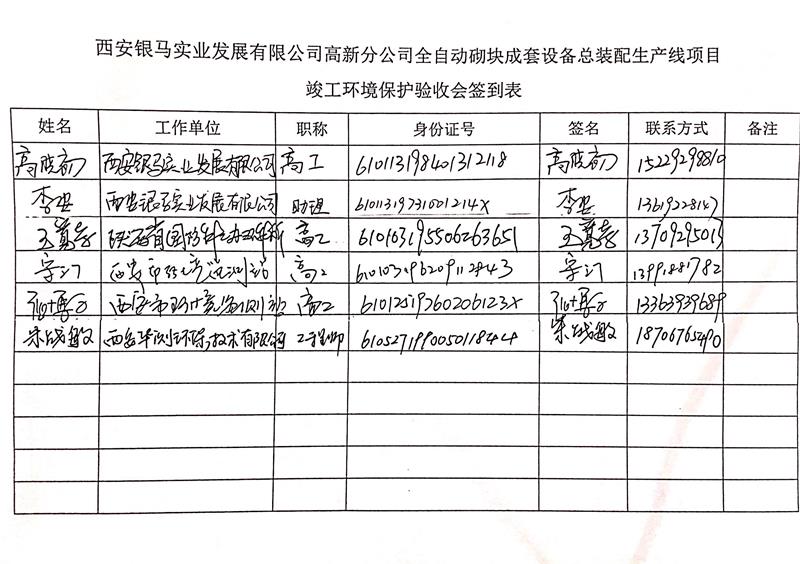 西安银马实业发展有限公司高新分公司全自动砌块成套设备总装配生产线项目
竣工环境保护验收会签到表
姓名 工作单位 职称 身份证号 签名 联系方式 备注
高晓初 西安银马实业发展有限公司 高工 610113198401312118 高晓初 15229298810
李 西安银马实业发展有限公司 助理 61011319731001214X 李 13619228147
王 陕西省 高工 610103195506263651 王 13709295013
西安市环境监测站 高工 610103196209112843 13991881782
西安市环境监测站 高工 61012519760206123X 13363939689
朱战敏 西安华测环保技术有限公司 工程师 610527199005011844 朱战敏 18706765490